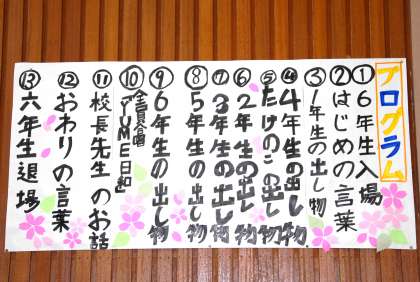 プログラム
①6年生入場
②はじめの言葉
③1年生の出し物
④4年生の出し物
⑤たけのこの出し物
⑥2年生の出し物
⑦3年生の出し物
⑧5年生の出し物
⑨6年生の出し物
⑩全員合唱
YUME日和
⑪校長先生のお話
⑫おわりの言葉
⑬六年生退場